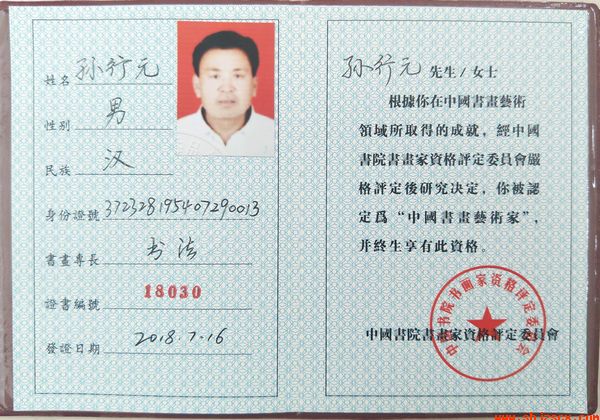 姓名 孙行元
性别 男
民族 汉
身份證號 372328195407290013
書畫專長 书法
證書編號 18030
發證日期 2018.7.16
孙行元 先生/女士
根據你在中國書畫藝術
領域所取得的成就，經中國
書院書畫家資格評定委員會嚴
格評定後研究决定，你被認
定爲“中國書畫藝術家”，
并終生享有此資格。
中國書院書畫家資格評定委員會
中国书院书画家资格评定委员会